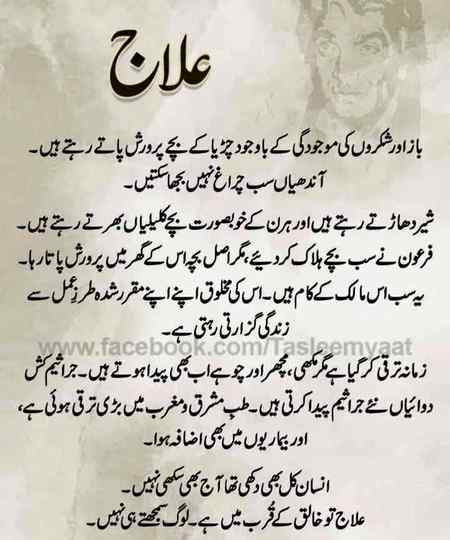 علاج
باز اور شکروں کی موجودگی کے باوجود چڑیا کے بچے پرورش پاتے رہتے ہیں۔
آندھیاں سب چراغ نہیں بجھا سکتیں۔
شیر دھاڑتے رہتے ہیں اور ہرن کے خوبصورت بچے کلیلیاں بھرتے رہتے ہیں۔
فرعون نے سب بچے ہلاک کر دئیے، مگر اصل بچہ اس کے گھر میں پرورش پاتا رہا۔
یہ سب اس مالک کے کام ہیں۔ اس کی مخلوق اپنے اپنے مقرر شدہ طرزِ عمل سے
زندگی گزارتی رہتی ہے۔
www.facebook.com/Tasleemyaat
زمانہ ترقی کر گیا ہے مگر مکھی، مچھر اور چوہے اب بھی پیدا ہوتے ہیں۔ جراثیم کش
دوائیاں نئے جراثیم پیدا کرتی ہیں۔ طبِ مشرق و مغرب میں بڑی ترقی ہوئی ہے،
اور بیماریوں میں بھی اضافہ ہوا۔
انسان کل بھی دکھی تھا آج بھی سکھی نہیں۔
علاج تو خالق کے قُرب میں ہے۔ لوگ سمجھتے ہی نہیں۔